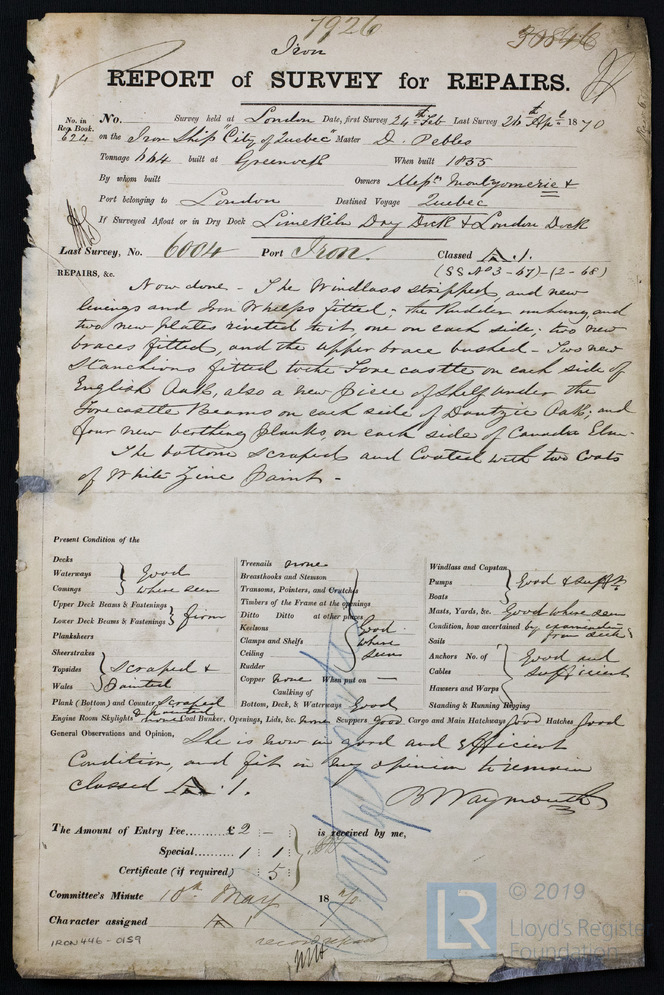 7926
30846
Iron
REPORT of SURVEY for REPAIRS.
No. in Reg. Book. 624
No. Survey held at London Date, first Survey 24th Feb Last Survey 26th Apl 1870
on the Iron Ship "City of Quebec" Master D. Peebles
Tonnage 664 built at Greenock When built 1855
By whom built Owners Messrs Montgomerie &
Port belonging to London Destined Voyage Quebec
If Surveyed Afloat or in Dry Dock Limekiln Dry Dock & London Dock
Last Survey, No. 6004 Port Iron. Classed A.1.
(SS No 3-67)-(2-68)
REPAIRS, &c.
Now done - The Windlass stripped, and new
linings and Iron Whelps fitted; the Rudder unhung, and
two new plates riveted to it, one on each side; two new
braces fitted, and the upper brace bushed - Two new
Stanchions fitted to the Fore castle on each side of
English Oak, also a new piece of Shelf under the
Forecastle Beams on each side of Dantzic Oak; and
four new berthing planks, on each side of Canada Elm -
The bottom scraped and Coated with two Coats
of White Zinc Paint -
Present Condition of the
Decks
Waterways
Comings
Good where seen
Upper Deck Beams & Fastenings
Lower Deck Beams & Fastenings
firm
Planksheers
Sheerstrakes
Topsides
Wales
Scraped & Painted
Plank (Bottom) and Counter Scraped & painted
Treenails none
Breasthooks and Stemson
Transoms, Pointers, and Crutches
Timbers of the Frame at the openings
Ditto Ditto at other places
Keelsons
Clamps and Shelfs
Ceiling
Rudder
Good where seen
Copper none When put on —
Caulking of
Bottom, Deck, & Waterways Good
Windlass and Capstan
Pumps
Boats
Good & sufft
Masts, Yards, &c. Good where seen
Condition, how ascertained by examination from deck
Sails
Anchors No. of
Cables
Hawsers and Warps
Standing & Running Rigging
Good and sufficient
Engine Room Skylights none Coal Bunker, Openings, Lids, &c. none Scuppers good Cargo and Main Hatchways Good Hatches Good
General Observations and Opinion, She is now in good and efficient
Condition, and fit in my opinion to remain
classed A.1.
B Waymouth
The Amount of Entry Fee......... £ 2 : - :
is received by me,
Special......... 1 : 1 :
Certificate (if required) : 5 :
Committee's Minute 10th May 1870.
Character assigned A 1
IRON 446-0159
LR
© 2019
Lloyd's Register
Foundation